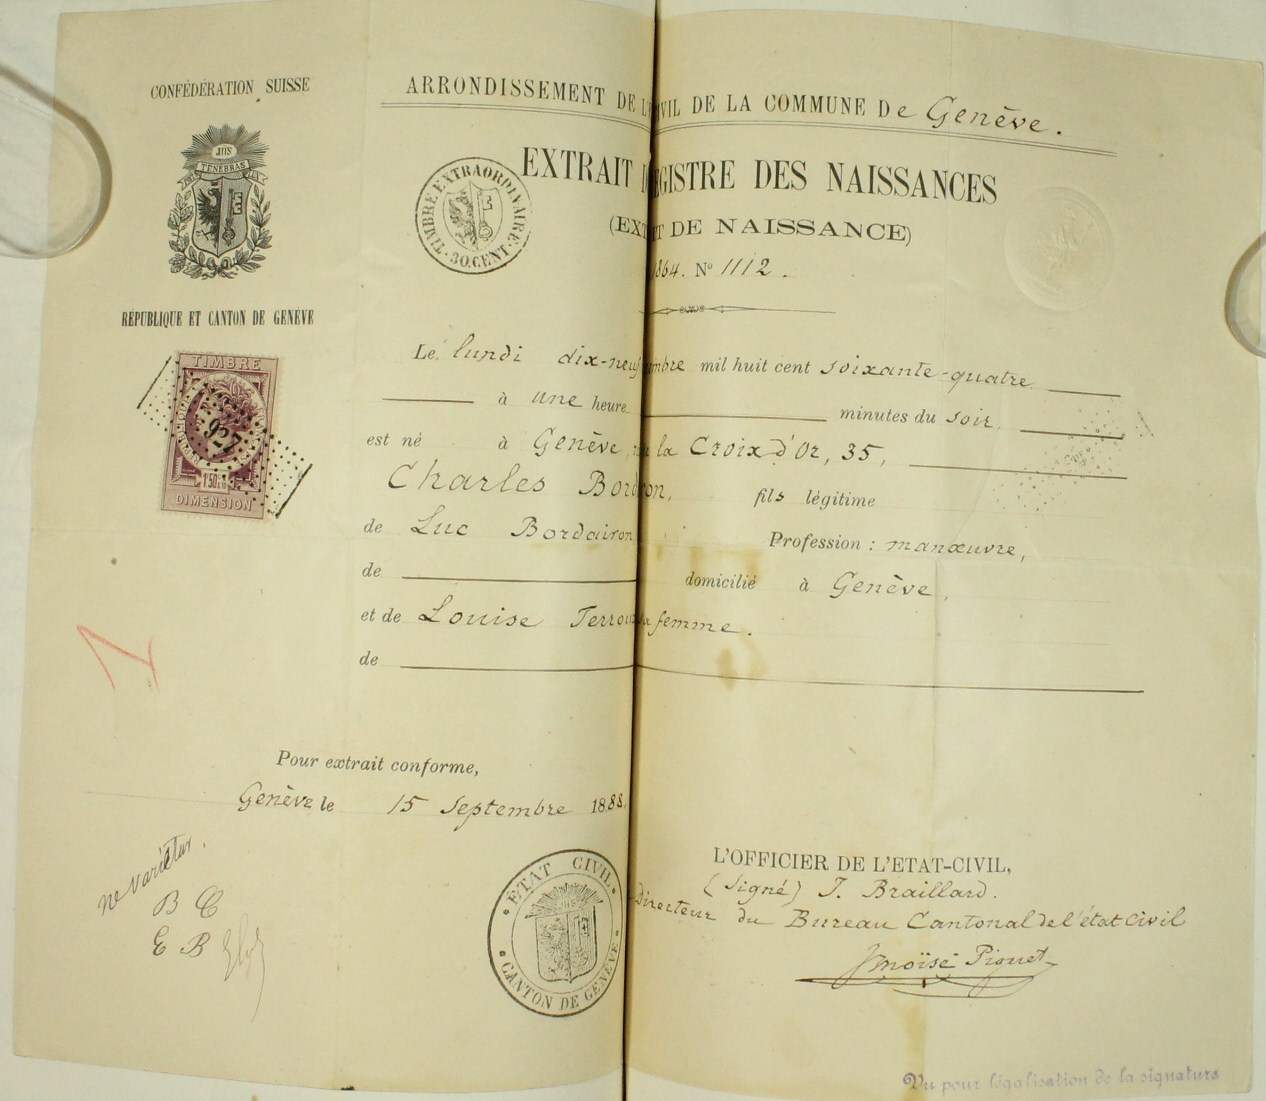 CONFÉDÉRATION SUISSE
POST TENEBRAS LUX
RÉPUBLIQUE ET CANTON DE GENÈVE
TIMBRE
927
1.50
DIMENSION
ARRONDISSEMENT DE L'IVIL DE LA COMMUNE De Genève.
TIMBRE EXTRAORDINAIRE
30.CENT.
EXTRAIT GISTRE DES NAISSANCES
(EXT DE NAISSANCE)
1864. No 1112.
Le lundi dix-neuf mbre mil huit cent soixante-quatre
à une heure minutes du soir,
est né à Genève, la Croix d'Or, 35,
Charles Bord on, fils légitime
de Luc Bordairon Profession : manœuvre,
de domicilié à Genève,
et de Louise Terroux sa femme.
de
Pour extrait conforme,
Genève le 15 Septembre 1888.
ne varietur.
B C
E B
ÉTAT CIVIL
CANTON DE GENÈVE
L'OFFICIER DE L'ETAT-CIVIL,
(Signé) J. Braillard.
Directeur du Bureau Cantonal de l'état civil
Moïse Piguet
Vu pour légalisation de la signature